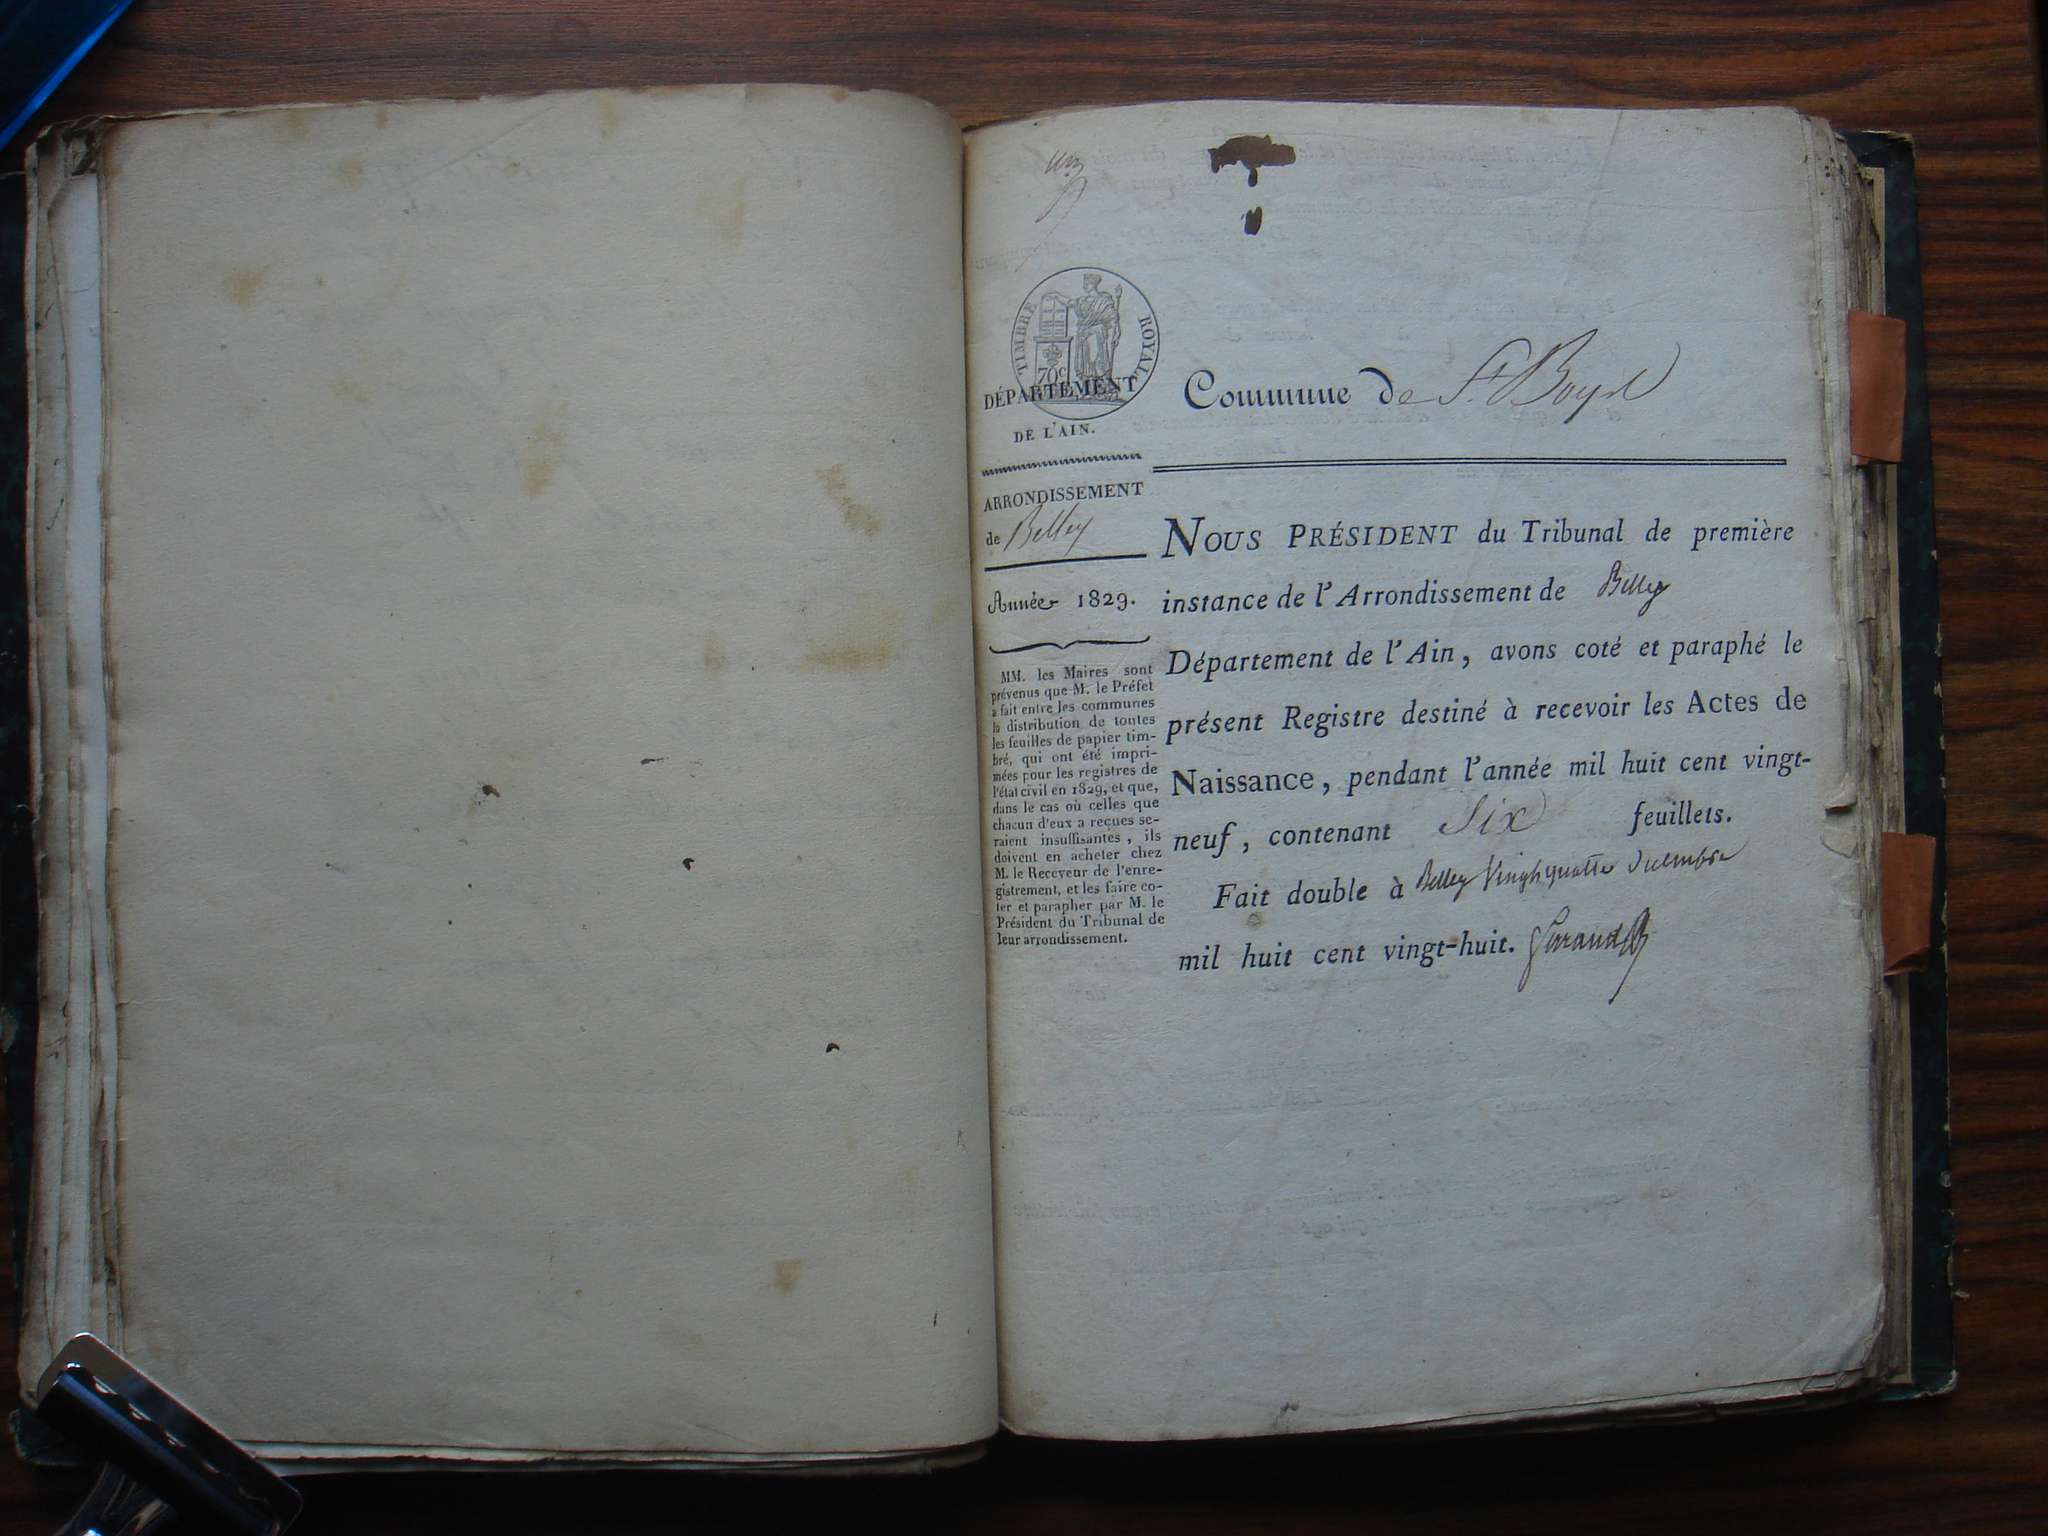 un
TIMBRE ROYAL
70c
DÉPARTEMENT
DE L'AIN.
Commune de St Boys
ARRONDISSEMENT
de Belley
Année 1829.
MM. les Maires sont
prévenus que M. le Préfet
a fait entre les communes
la distribution de toutes
les feuilles de papier tim-
bré, qui ont été impri-
mées pour les registres de
l'état civil en 1829, et que,
dans le cas où celles que
chacun d'eux a reçues se-
raient insuffisantes, ils
doivent en acheter chez
M. le Receveur de l'enre-
gistrement, et les faire co-
ter et parapher par M. le
Président du Tribunal de
leur arrondissement.
NOUS PRÉSIDENT du Tribunal de première
instance de l'Arrondissement de Belley
Département de l'Ain, avons coté et paraphé le
présent Registre destiné à recevoir les Actes de
Naissance, pendant l'année mil huit cent vingt-
neuf, contenant Six feuillets.
Fait double à Belley Vingt quatre Décembre
mil huit cent vingt-huit.